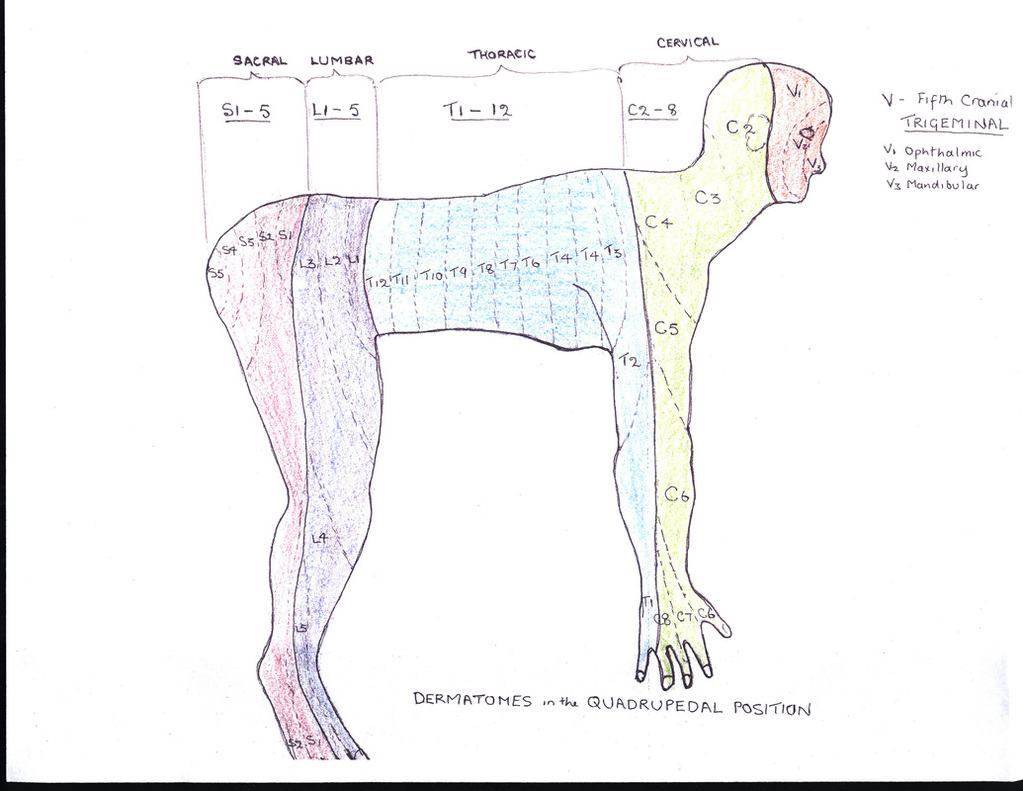 SACRAL LUMBAR THORACIC CERVICAL
S1-5 L1-5 T1-12 C2-8
V - Fifth Cranial
TRIGEMINAL
V1 Ophthalmic
V2 Maxillary
V3 Mandibular
V1
V2
V3
C2
C3
C4
S5 S4 S3 S2 S1 L3 L2 L1 T12 T11 T10 T9 T8 T7 T6 T4 T4 T3
C5
T2
C6
L4
T1 C8 C7 C6
L5
S2 S1
DERMATOMES in the QUADRUPEDAL POSITION